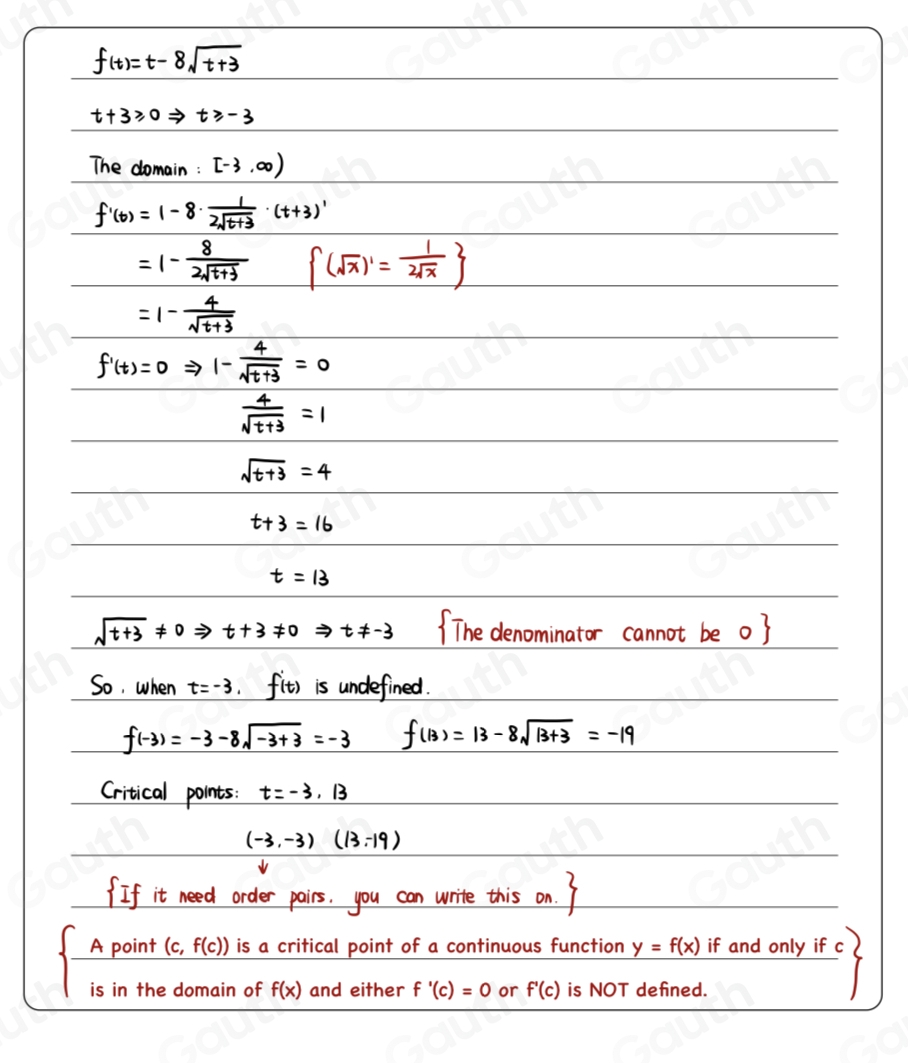 f(t)=t-8√(t+3)
t+3≥0 ⇒ t≥-3
The domain: [-3,∞)
f'(t) = 1-8·1/(2√(t+3))·(t+3)'
=1-8/(2√(t+3)) {(√x)'=1/(2√x)}
=1-4/√(t+3)
f'(t)=0 ⇒ 1-4/√(t+3) = 0
4/√(t+3) = 1
√(t+3) = 4
t+3 = 16
t = 13
√(t+3) ≠ 0 ⇒ t+3≠0 ⇒ t≠-3 {The denominator cannot be 0}
So, when t=-3, f'(t) is undefined.
f(-3) = -3-8√(-3+3) = -3 f(13) = 13-8√(13+3) = -19
Critical points: t=-3, 13
(-3,-3) (13,-19)
↓
{If it need order pairs, you can write this on.}
{A point (c, f(c)) is a critical point of a continuous function y = f(x) if and only if c
is in the domain of f(x) and either f '(c) = 0 or f'(c) is NOT defined.}